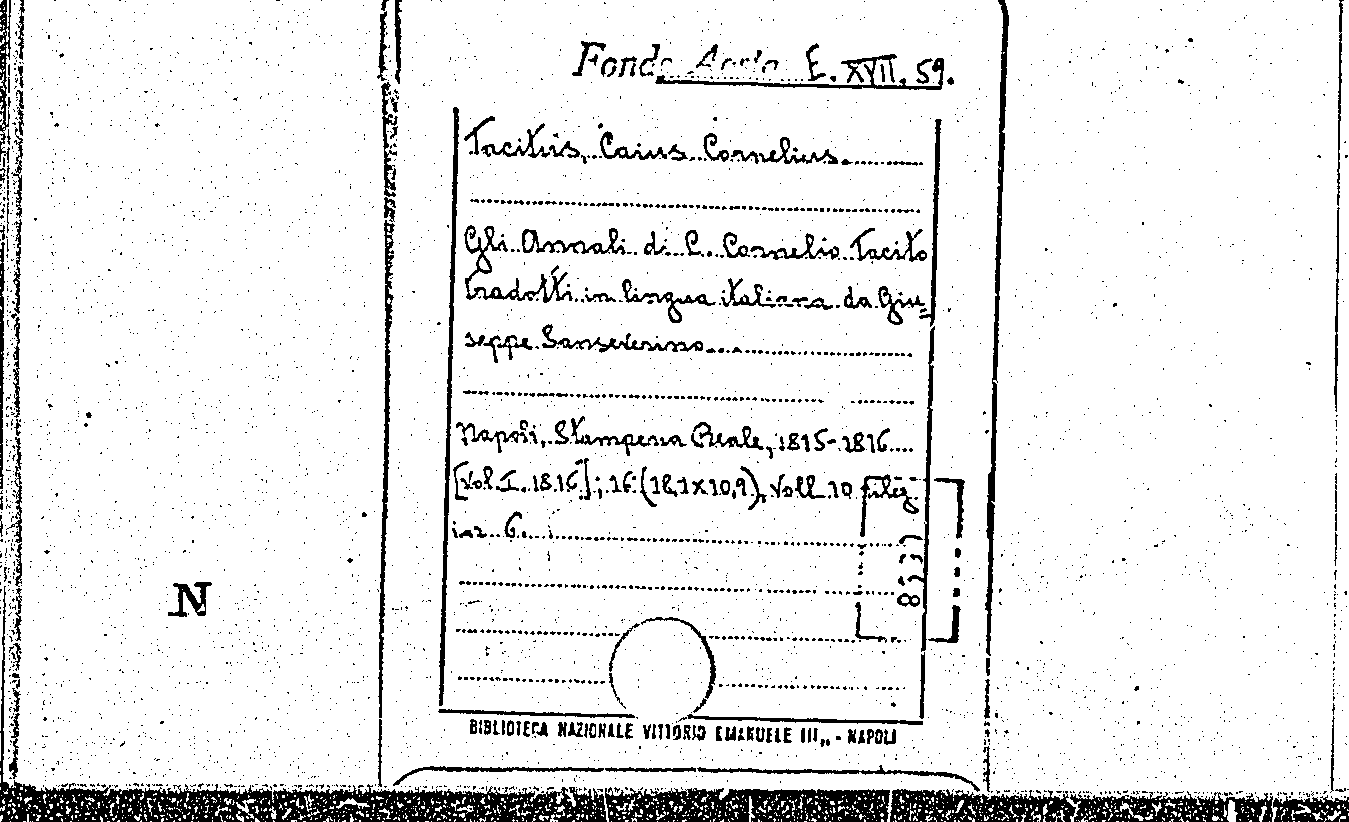 Fondo Aosta E. XVII. 59.
Tacitus, Caius Cornelius.
Gli Annali di C. Cornelio Tacito
tradotti in lingua italiana da Giu=
seppe Sanseverino
Napoli, Stamperia Reale, 1815-1816
[Vol. I. 1816]; 16° (18,1x10,9), Voll. 10 rileg.
in 6.
8537
N
BIBLIOTECA NAZIONALE VITTORIO EMANUELE III„ - NAPOLI